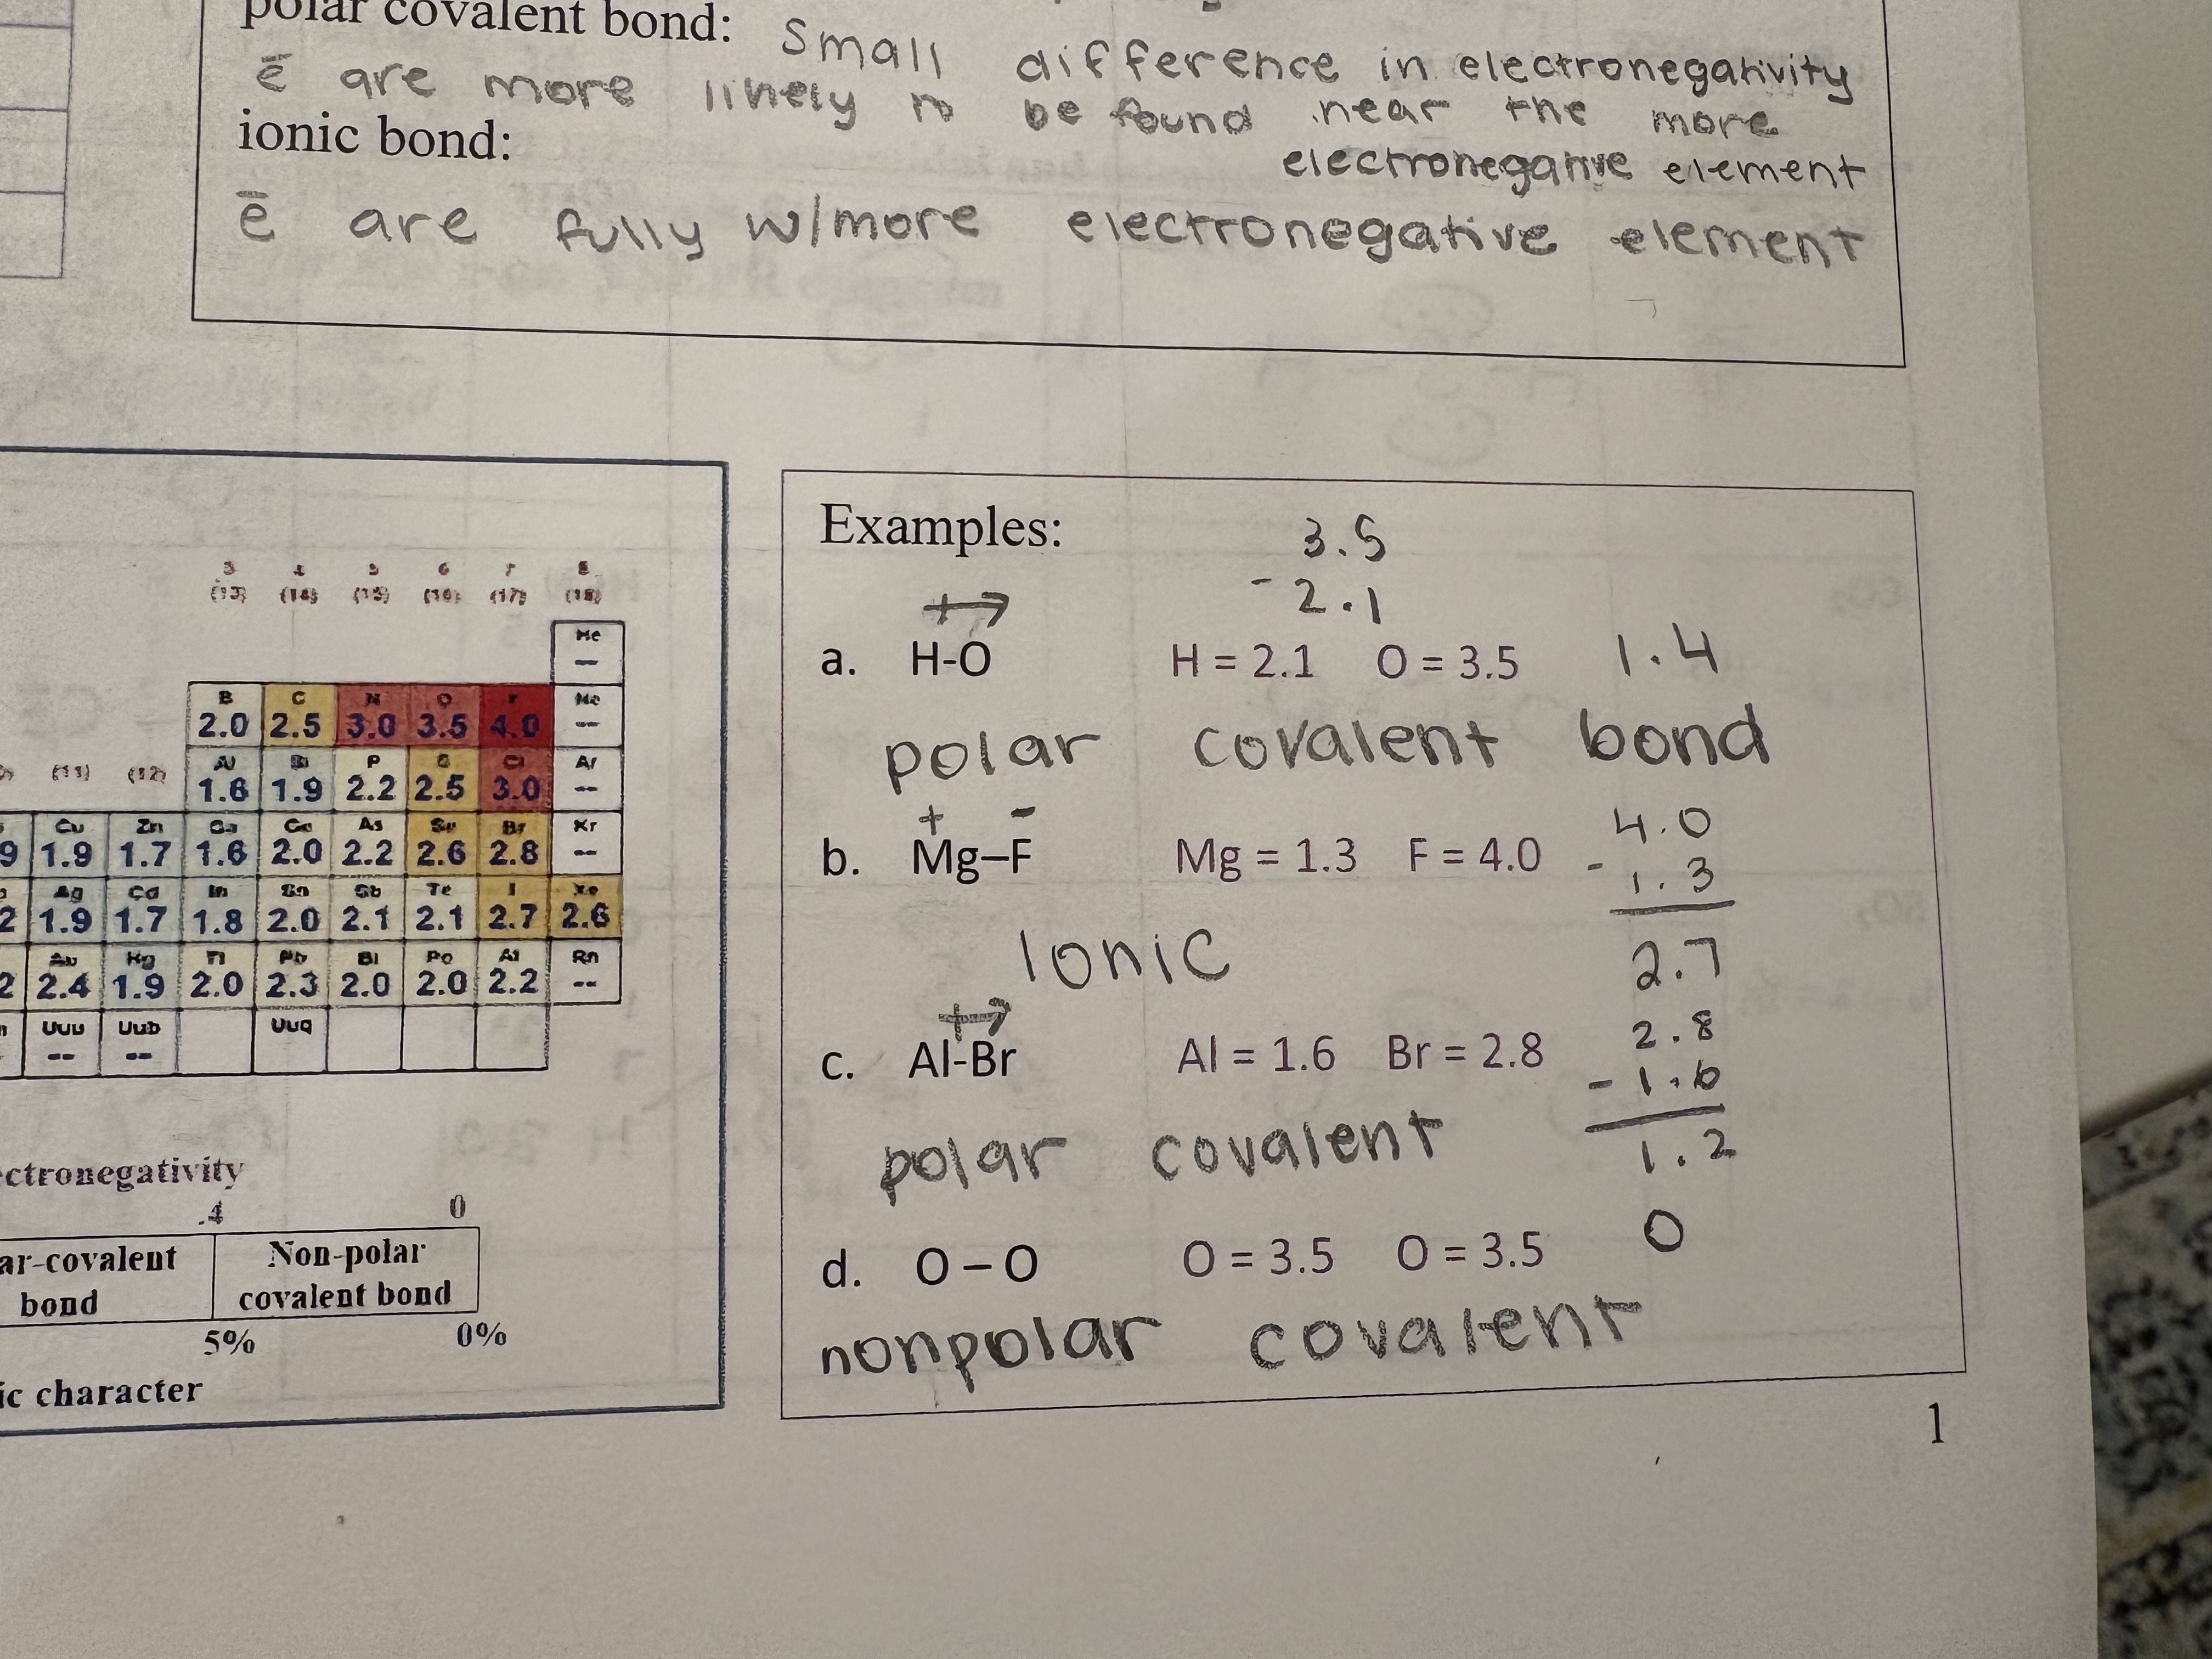 polar covalent bond: small difference in electronegativity
ē are more likely to be found near the more
electronegative element
ionic bond:
ē are fully w/more electronegative element
3 4 5 6 7 8
(13) (14) (15) (16) (17) (18)
He
--
B C N O F Ne
2.0 2.5 3.0 3.5 4.0 --
(11) (12) Al Si P S Cl Ar
1.6 1.9 2.2 2.5 3.0 --
Cu Zn Ga Ge As Se Br Kr
9 1.9 1.7 1.6 2.0 2.2 2.6 2.8 --
Ag Cd In Sn Sb Te I Xe
2 1.9 1.7 1.8 2.0 2.1 2.1 2.7 2.6
Au Hg Tl Pb Bi Po At Rn
2 2.4 1.9 2.0 2.3 2.0 2.0 2.2 --
Uuu Uub Uuq
-- --
ectronegativity
.4 0
ar-covalent Non-polar
bond covalent bond
5% 0%
ic character
Examples:
3.5
- 2.1
a. H-O H = 2.1 O = 3.5 1.4
polar covalent bond
+ - 4.0
b. Mg–F Mg = 1.3 F = 4.0 - 1.3
Ionic 2.7
2.8
c. Al-Br Al = 1.6 Br = 2.8 - 1.6
polar covalent 1.2
d. O – O O = 3.5 O = 3.5 0
nonpolar covalent
1